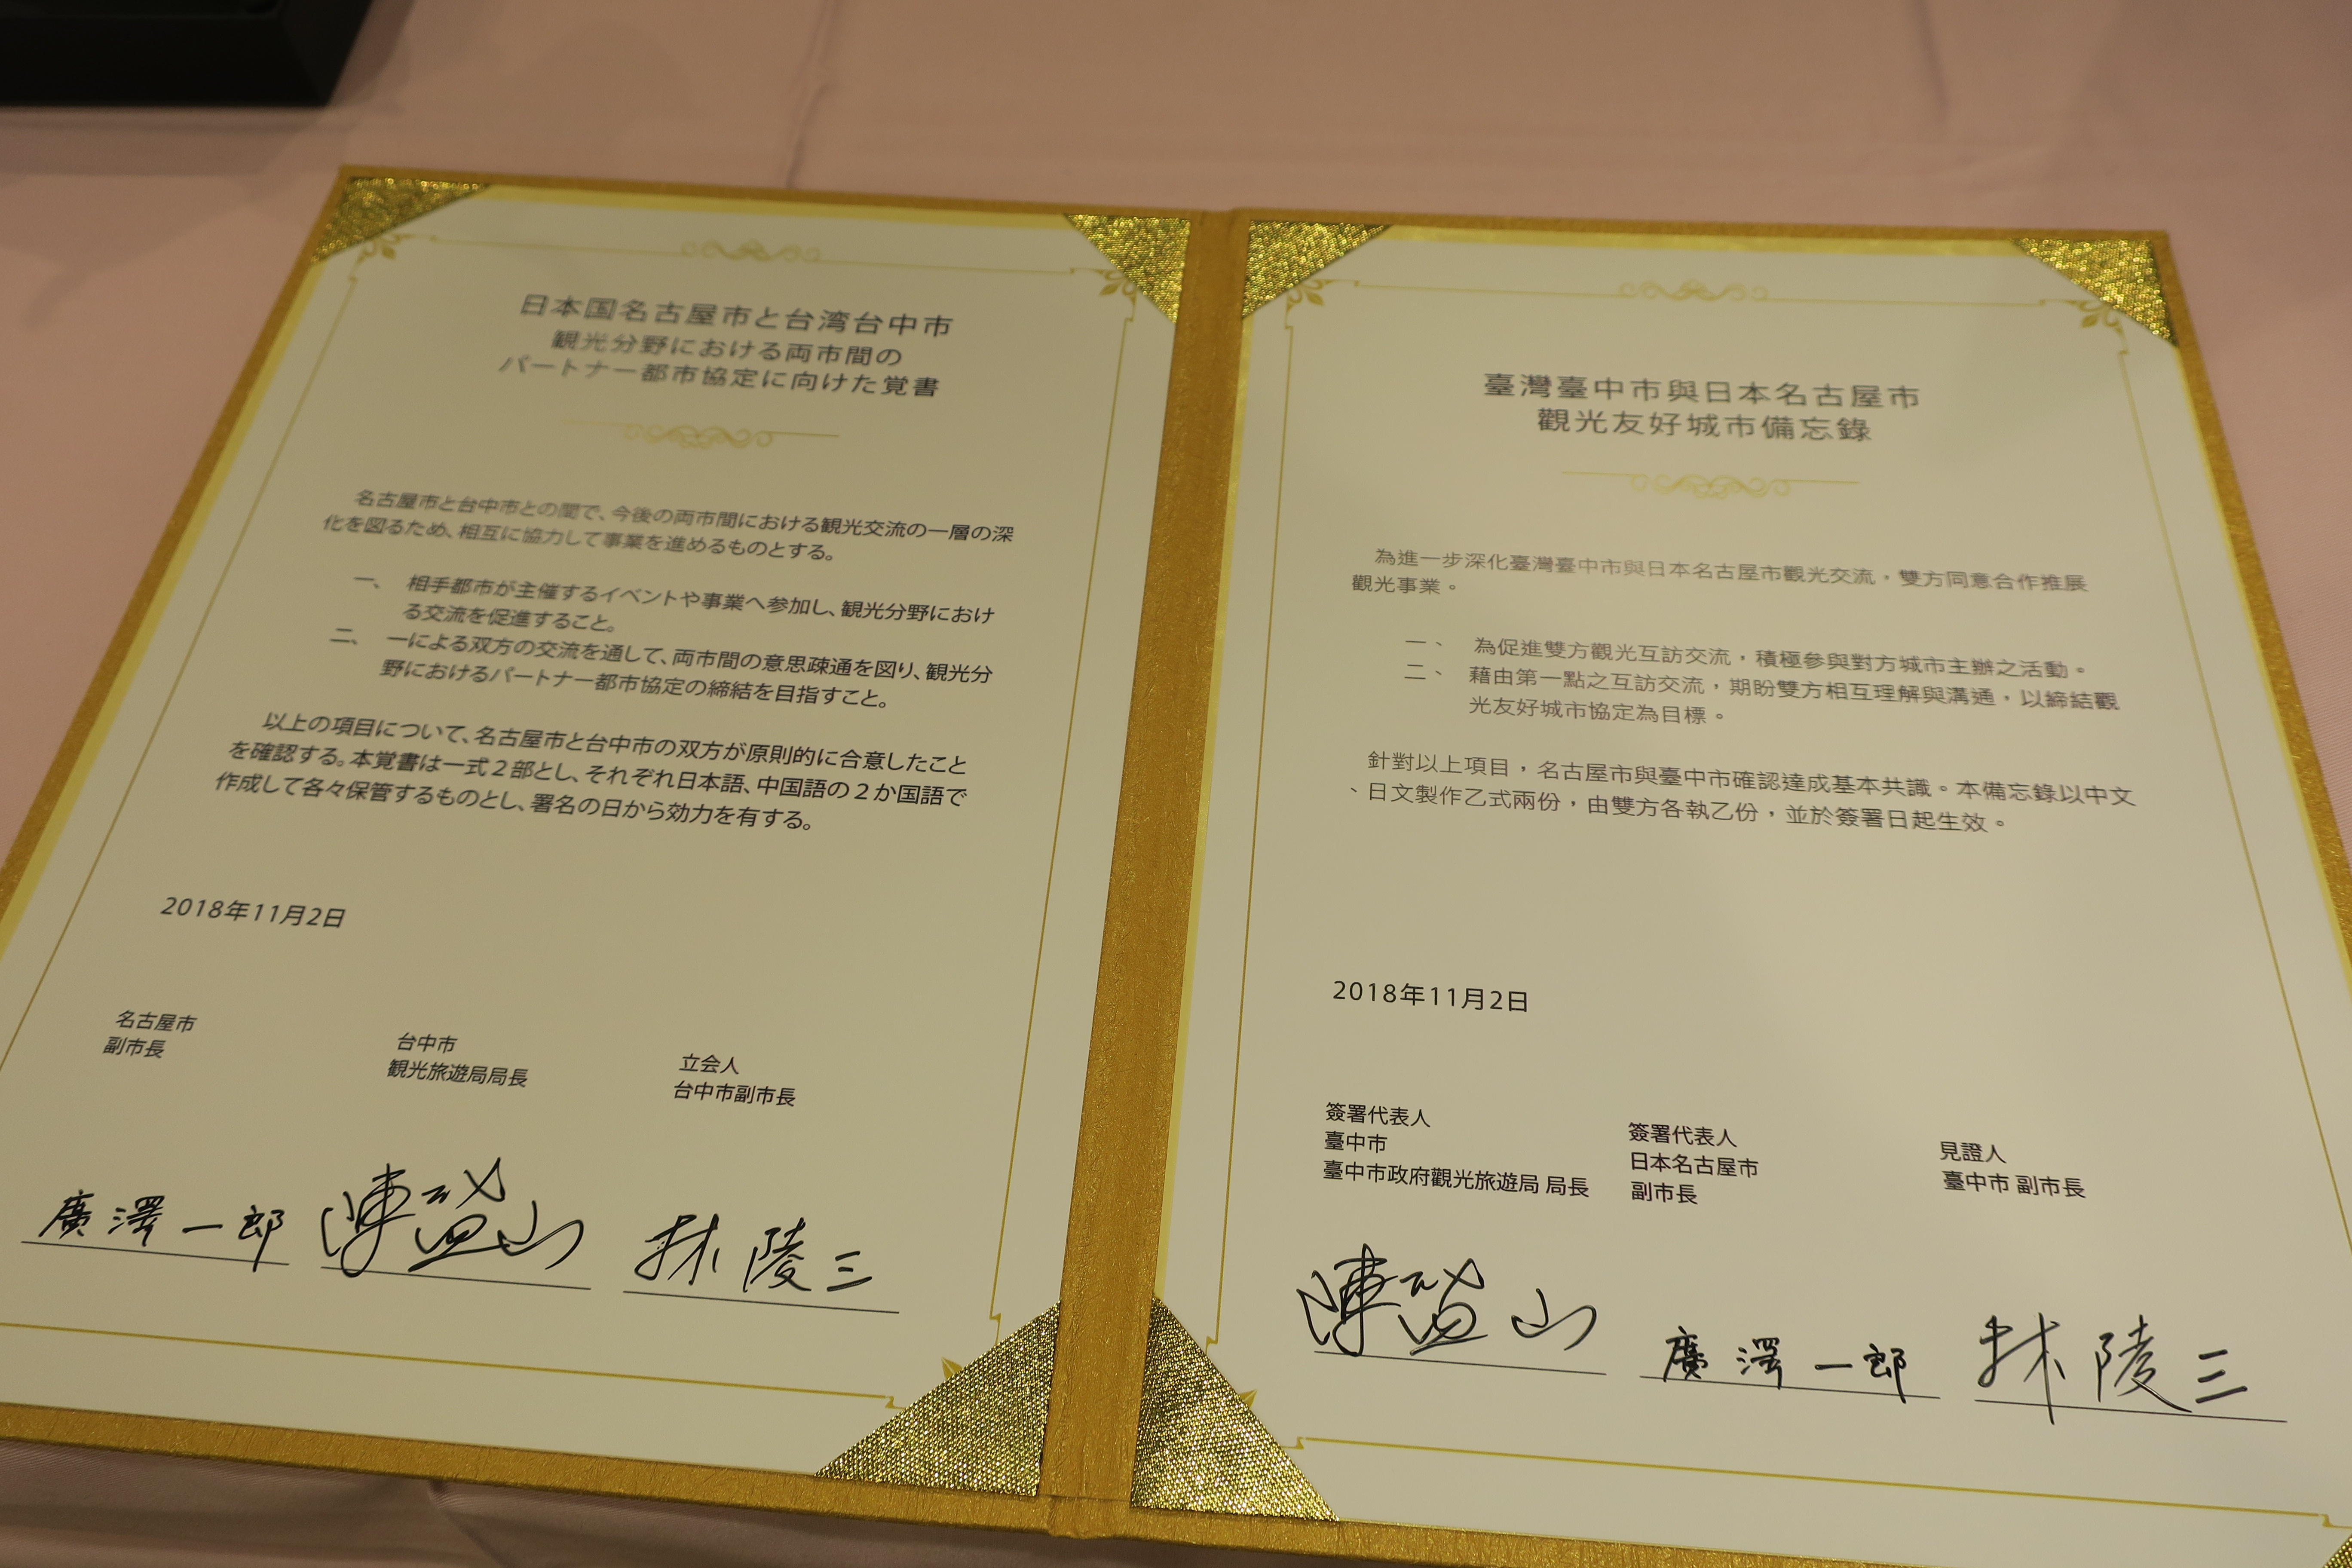 日本国名古屋市と台湾台中市
観光分野における両市間の
パートナー都市協定に向けた覚書
名古屋市と台中市との間で、今後の両市間における観光交流の一層の深
化を図るため、相互に協力して事業を進めるものとする。
一、 相手都市が主催するイベントや事業へ参加し、観光分野におけ
る交流を促進すること。
二、 一による双方の交流を通して、両市間の意思疎通を図り、観光分
野におけるパートナー都市協定の締結を目指すこと。
以上の項目について、名古屋市と台中市の双方が原則的に合意したこと
を確認する。本覚書は一式２部とし、それぞれ日本語、中国語の２か国語で
作成して各々保管するものとし、署名の日から効力を有する。
2018年11月2日
名古屋市
副市長
台中市
観光旅遊局局長
立会人
台中市副市長
廣澤一郎
陳盈山
林陵三
臺灣臺中市與日本名古屋市
觀光友好城市備忘錄
為進一步深化臺灣臺中市與日本名古屋市觀光交流，雙方同意合作推展
觀光事業。
一、 為促進雙方觀光互訪交流，積極參與對方城市主辦之活動。
二、 藉由第一點之互訪交流，期盼雙方相互理解與溝通，以締結觀
光友好城市協定為目標。
針對以上項目，名古屋市與臺中市確認達成基本共識。本備忘錄以中文
、日文製作乙式兩份，由雙方各執乙份，並於簽署日起生效。
2018年11月2日
簽署代表人
臺中市
臺中市政府觀光旅遊局 局長
簽署代表人
日本名古屋市
副市長
見證人
臺中市 副市長
陳盈山
廣澤一郎
林陵三